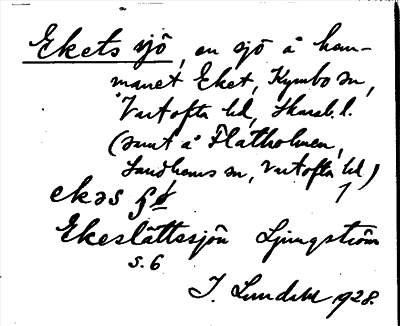 Ekets sjö, en sjö å hem-
manet Eket, Kymbo sn,
Vartofta hd, Skarab. l.
(samt å Flatholmen,
Sandhems sn, Vartofta hd)
ekəs
Ekeslättssjön Ljungström
s. 6
J. Lundahl 1928.